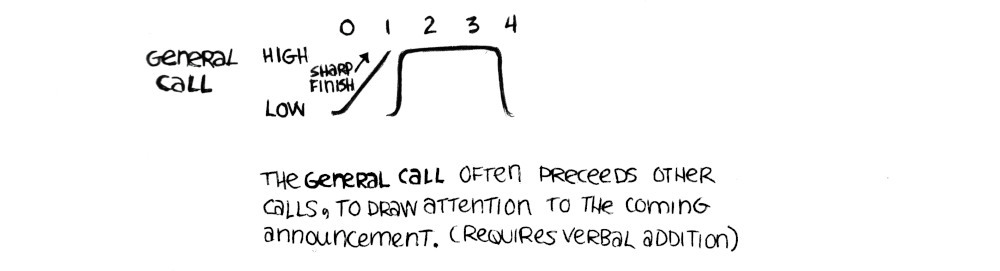 0 1 2 3 4
GENERAL HIGH
CALL
SHARP
FINISH
LOW
THE GENERAL CALL OFTEN PRECEEDS OTHER
CALLS, TO DRAW ATTENTION TO THE COMING
ANNOUNCEMENT. (REQUIRES VERBAL ADDITION)